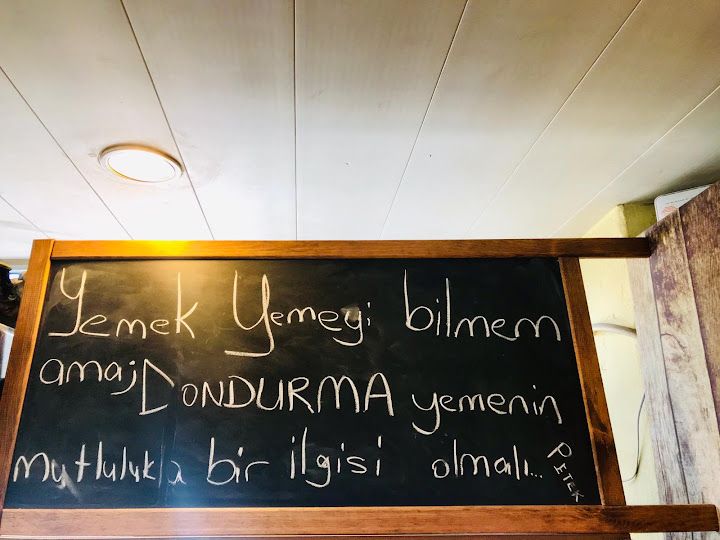 Yemek Yemeyi bilmem
amaj DONDURMA yemenin
mutlulukla bir ilgisi olmalı...
PETEK